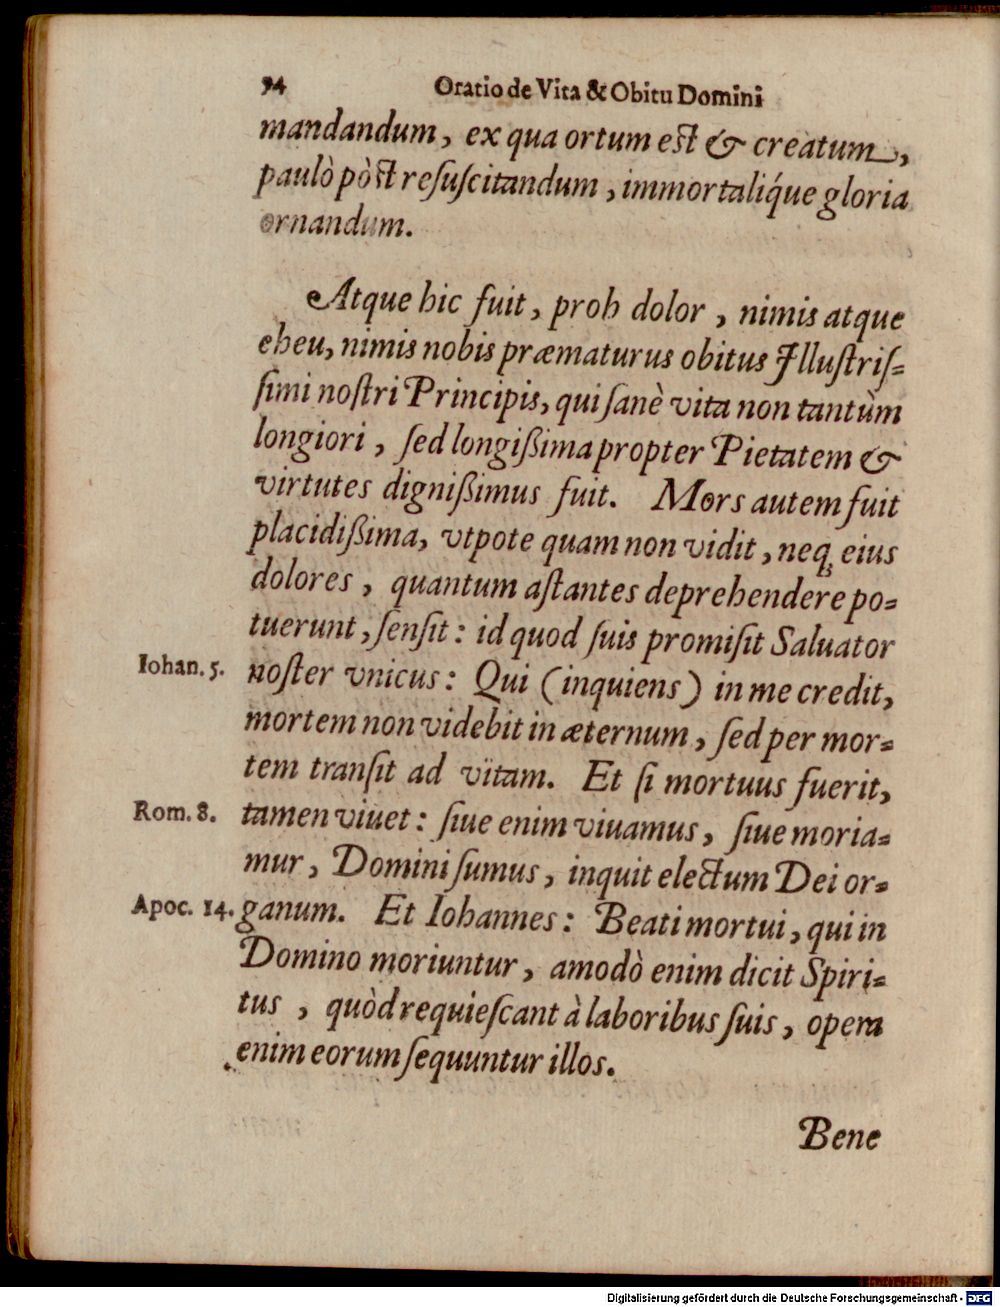 94 Oratio de Vita & Obitu Domini
mandandum, ex qua ortum est & creatum,
paulò pòst reſuſcitandum, immortaliq́ue gloria
ornandum.
Atque hic fuit, proh dolor, nimis atque
eheu, nimis nobis præmaturus obitus Illuſtriſ-
ſimi noſtri Principis, qui ſanè vita non tantùm
longiori, ſed longißima propter Pietatem &
virtutes digniſſimus fuit. Mors autem fuit
placidißima, vtpote quam non vidit, neq; eius
dolores, quantum aſtantes deprehendere po-
tuerunt, ſenſit: id quod ſuis promiſit Saluator
Iohan. 5. noſter vnicus: Qui (inquiens) in me credit,
mortem non videbit in æternum, ſed per mor-
tem tranſit ad vitam. Et ſi mortuus fuerit,
Rom. 8. tamen viuet: ſiue enim viuamus, ſiue moria-
mur, Domini ſumus, inquit electum Dei or-
Apoc. 14. ganum. Et Iohannes: Beati mortui, qui in
Domino moriuntur, amodò enim dicit Spiri-
tus, quòd requieſcant à laboribus ſuis, opera
enim eorum ſequuntur illos.
Bene
Digitalisierung gefördert durch die Deutsche Forschungsgemeinschaft - DFG